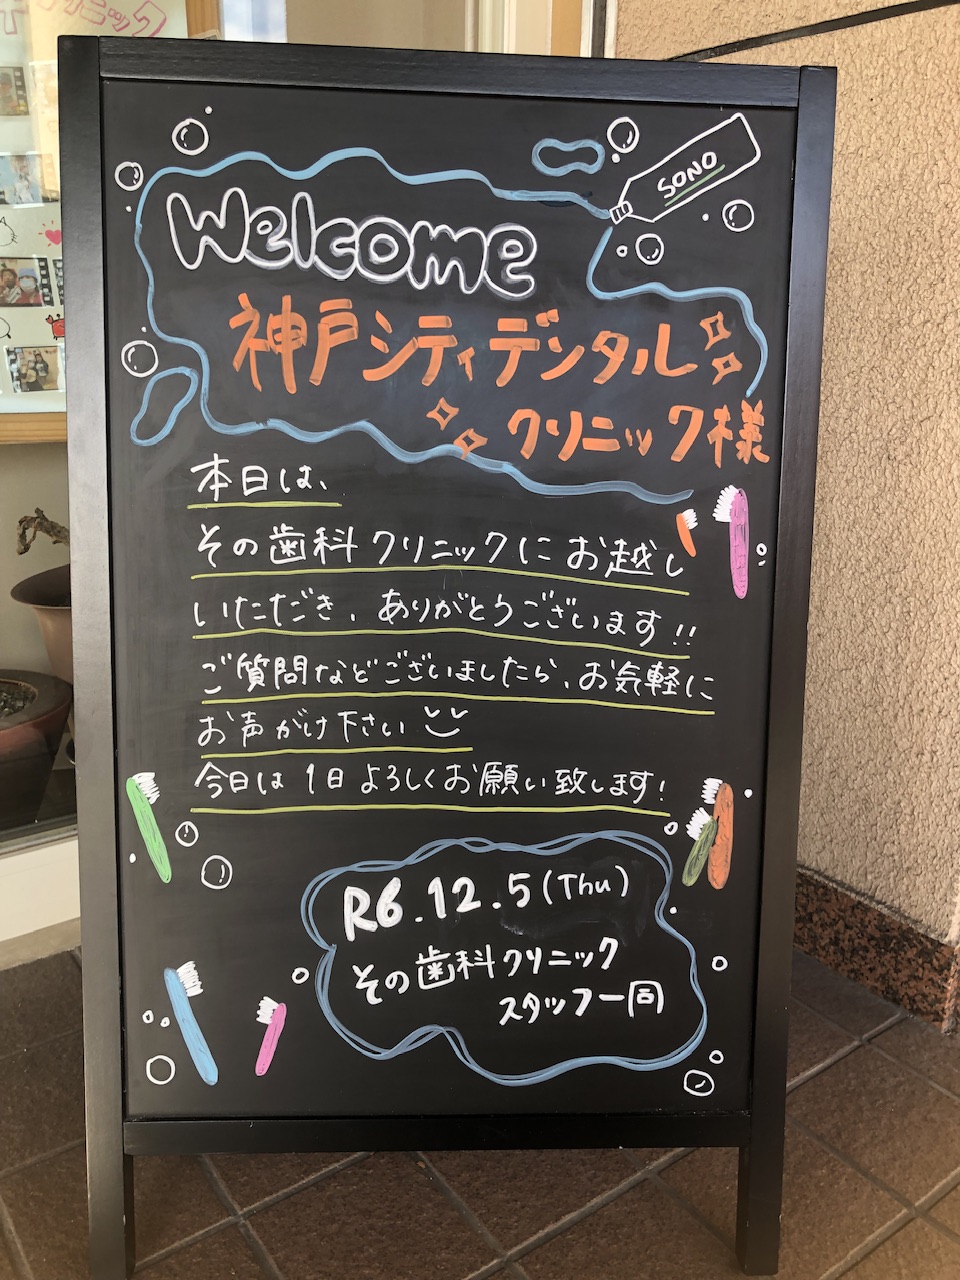 SONO
Welcome
神戸シティデンタル
クリニック様
本日は、
その歯科クリニックにお越し
いただき、ありがとうございます!!
ご質問などございましたら、お気軽に
お声がけ下さい
今日は1日よろしくお願い致します!
R6.12.5(Thu)
その歯科クリニック
スタッフ一同